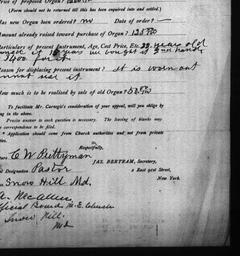 Price of proposed Organ?
(Form should not to be returned till this has been enquired into and settled.)
Has new Organ been ordered? no Date of order?
Amount already raised toward purchase of Organ? 125 00
Particulars of present Instrument, Age, Cost Price, Etc. 22 years old
we bought it 2nd hand
$400 for it
Reason for displacing present Instrument? it is worn out
cannot use it
How much is to be realised by sale of old Organ?
To facilitate Mr. Carnegie's consideration of appeal, will you oblige by
being in the above.
Precise answer to each question is necessary. The leaving of blanks may
correspondence to be filed.
* Application should come from Church authorities and not from private
parties.
Respectfully,
C W Prettyman JAS. BERTRAM, Secretary,
Designation Pastor 2 East 91st Street,
Snow Hill Md. New York.
McAllen
Official Board M. E. Church
Snow Hill
Md